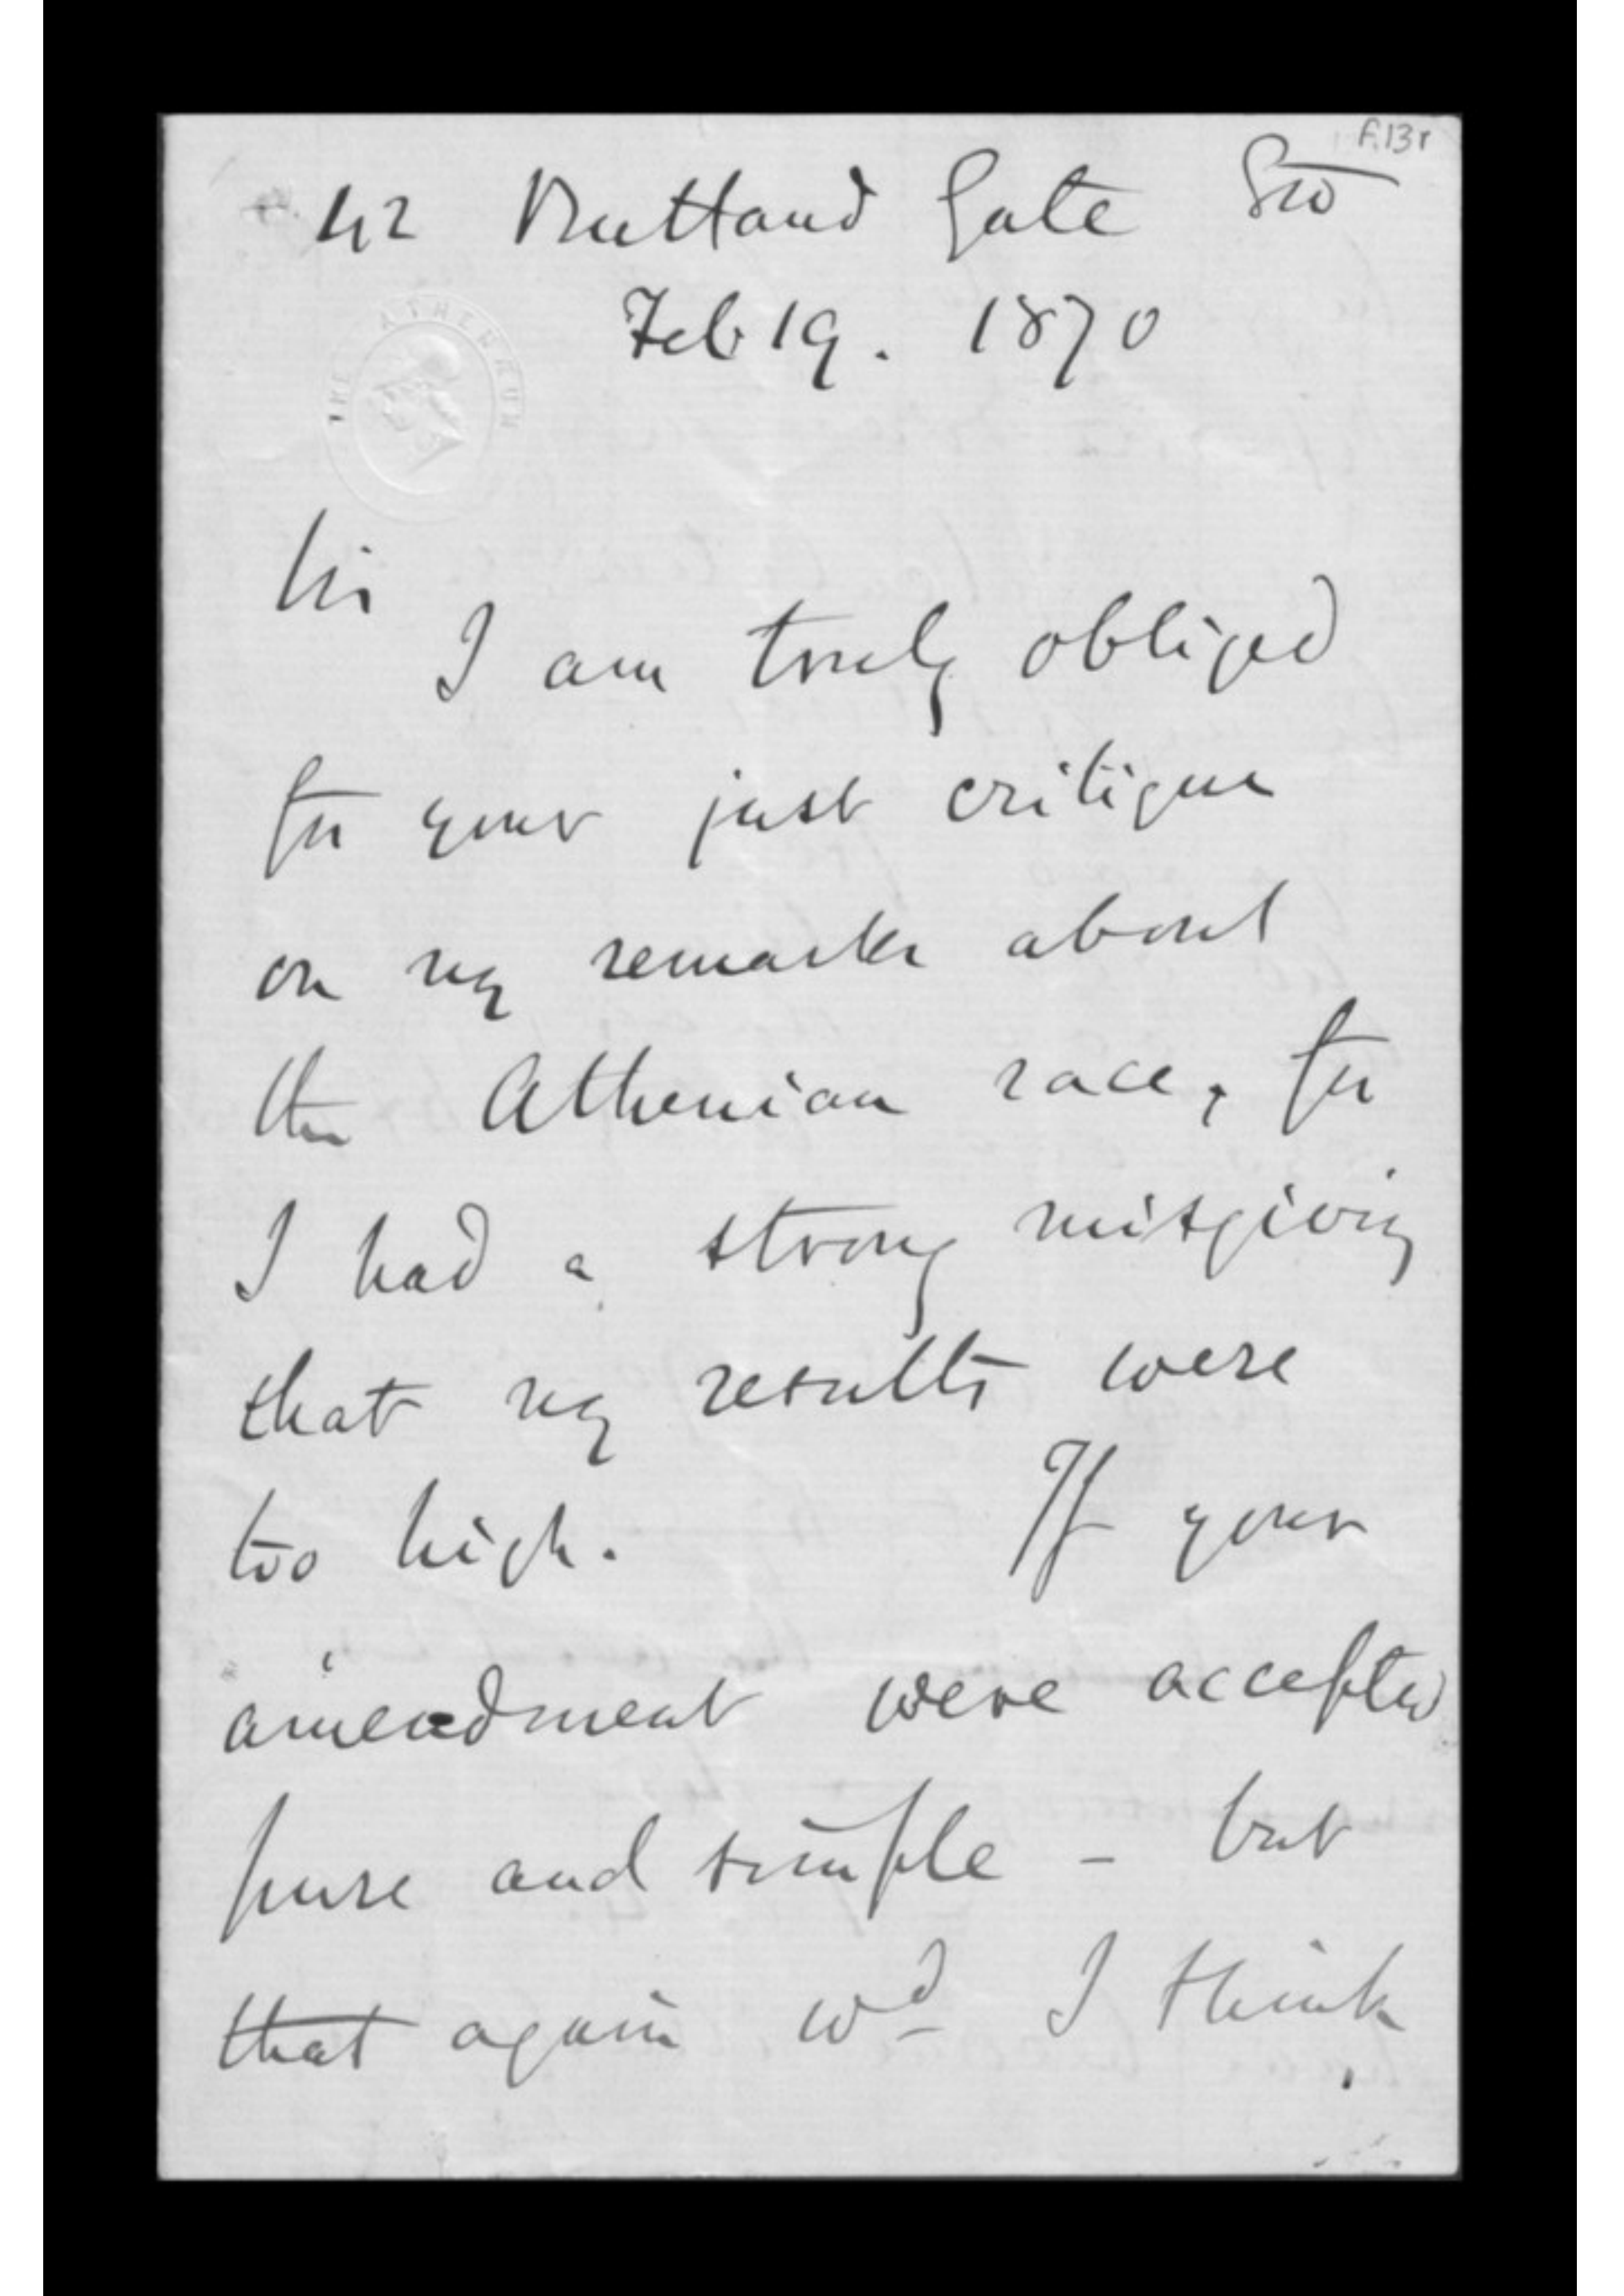 F.13r
42 Rutland Gate SW
Feb 19. 1870
THE ATHENÆUM
Sir
I am truly obliged
for your just critique
on my remarks about
the Athenian race, for
I had a strong misgiving
that my results were
too high. If your
amendment were accepted
pure and simple - but
that again wd I think